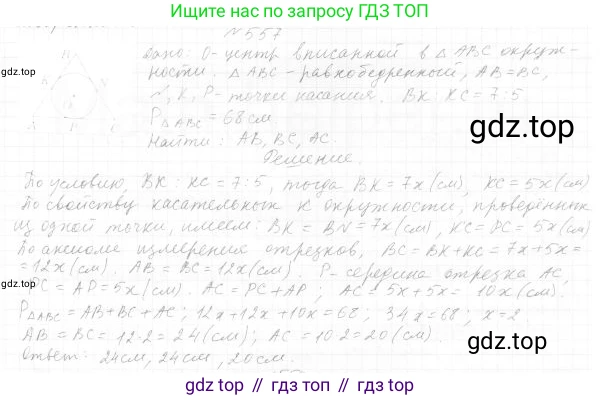 Ищите нас по запросу ГДЗ ТОП
№557
gdz.top
Дано: O-центр вписанной в △ABC окруж-
ности. △ABC-равнобедренный, AB=BC,
N, K, P-точки касания. BK:KC=7:5
P△ABC=68см
Найти: AB, BC, AC.
gdz.top
Решение.
По условию, BK:KC=7:5, тогда BK=7x(см), KC=5x(см)
По свойству касательных к окружности, проведённых
из одной точки, имеем: BK=BN=7x(см), KC=PC=5x(см)
По аксиоме измерения отрезков, BC=BK+KC=7x+5x=
=12x(см). AB=BC=12x(см). P-середина отрезка AC,
gdz.top
PC=AP=5x(см). AC=PC+AP; AC=5x+5x=10x(см).
P△ABC=AB+BC+AC; 12x+12x+10x=68; 34x=68; x=2
AB=BC=12·2=24(см); AC=10·2=20(см).
Ответ: 24см, 24см, 20см.
gdz.top // гдз топ // gdz.top